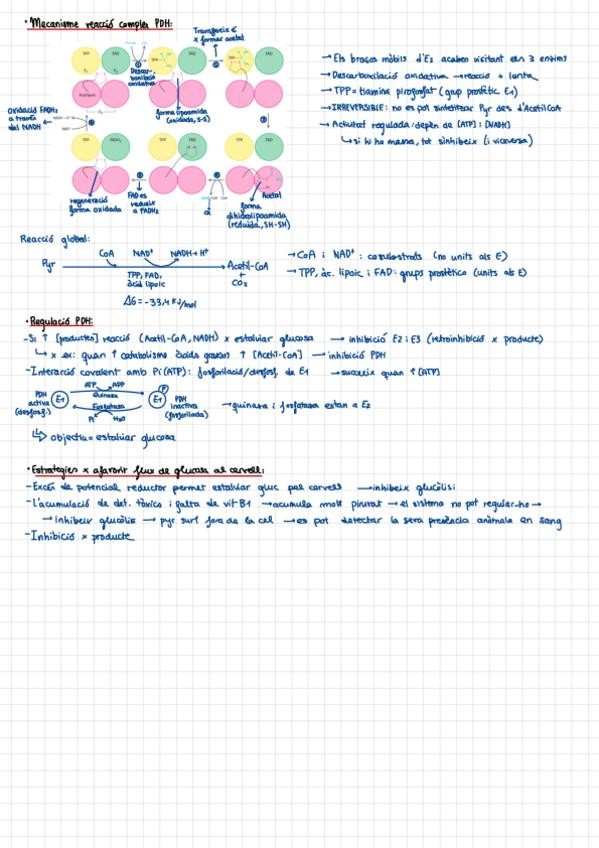 · Mecanisme reacció complex PDH:
Transfereix e⁻
x formar acetat
TPP
FAD
Descar-
boxilació
oxidativa
forma lipoamida
(oxidada, S-S)
Oxidació FADH₂
a través
del NADH
regeneració
forma oxidada
FAD es
redueix a
FADH₂
Acetil
forma
dihidrolipoamida
(reduïda, SH-SH)
→ Els braços mòbils d'E₂ acaben visitant els 3 enzims
→ Descarboxilació oxidativa → reacció + lenta
→ TPP = tiamina pirofosfat (grup prostètic E₁)
→ IRREVERSIBLE: no es pot sintetitzar Pyr des d'Acetil CoA
→ Activitat regulada: depèn de [ATP] i [NADH]
↳ si hi ha massa, tot s'inhibeix (i viceversa)
Reacció global:
CoA NAD⁺ NADH + H⁺
Pyr → Acetil-CoA
+
CO₂
TPP, FAD,
àcid lipoic
ΔG = -33,4 KJ/mol
→ CoA i NAD⁺: cosubstrats (no units als E)
→ TPP, àc. lipoic i FAD: grups prostètics (units als E)
· Regulació PDH:
- Si ↑ [productes] reacció (Acetil-CoA, NADH) x estalviar glucosa → inhibició E2 i E3 (retroinhibició x producte)
↳ x ex: quan ↑ catabolisme àcids grassos ↑ [Acetil-CoA] → inhibició PDH
- Interacció covalent amb Pi (ATP): fosforilació/desfosf. de E1 → succeix quan ↑ [ATP]
ATP ADP
PDH
activa
(desfosf.)
E1
Quinasa
Fosfatasa
Pi H₂O
E1
P
PDH
inactiva
(fosforilada)
→ quinasa i fosfatasa estan a E2
↳ objectiu = estalviar glucosa
· Estratègies x afavorir flux de glucosa al cervell:
- Excés de potencial reductor permet estalviar gluc pel cervell → inhibeix glucòlisi
- L'acumulació de det. tòxics i falta de vit B1 → acumula molt piruvat → el sistema no pot regular-ho →
→ inhibeix glucòlisi → pyr surt fora de la cèl → es pot detectar la seva presència anòmala en sang
- Inhibició x producte